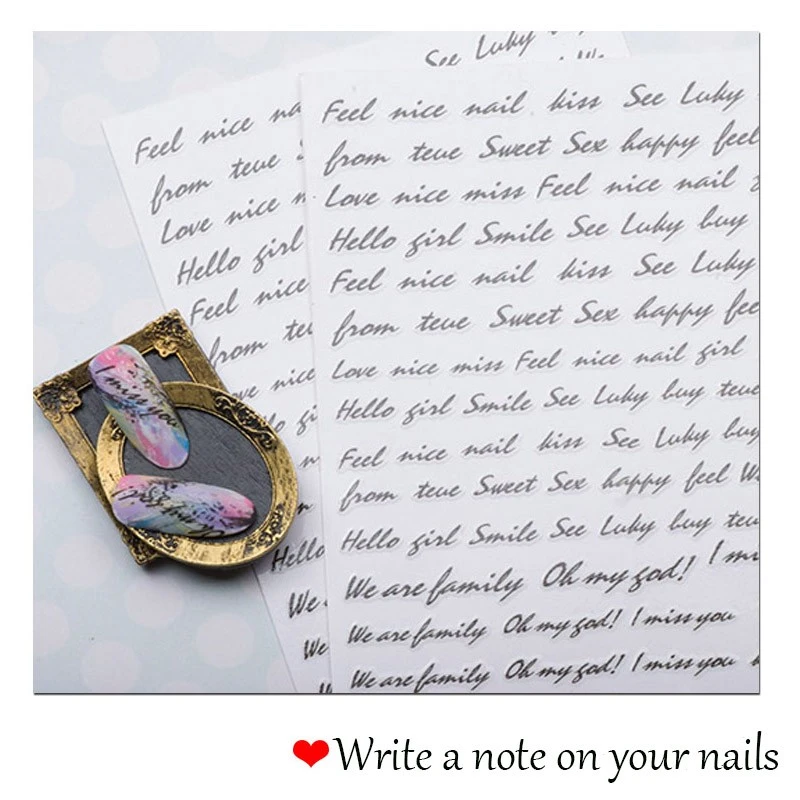 See Luky
Feel nice na
from teue
Love nice n
Hello girl
Feel nice
from teu
ve nice
Hello
We
We
Feel nice nail kiss See Luky
from teue Sweet Sex happy feel
Love nice miss Feel nice nail
Hello girl Smile See Luky buy
Feel nice nail kiss See Luky
from teue Sweet Sex happy fee
Love nice miss Feel nice nail girl
Hello girl Smile See Luky buy teue
Feel nice nail kiss See Luky buy
from teue Sweet Sex happy feel W
Hello girl Smile See Luky buy teu
We are family Oh my god! I mi
We are family Oh my god! I miss you
We are family Oh my god! I miss you
I miss you
Oh my god!
❤Write a note on your nails